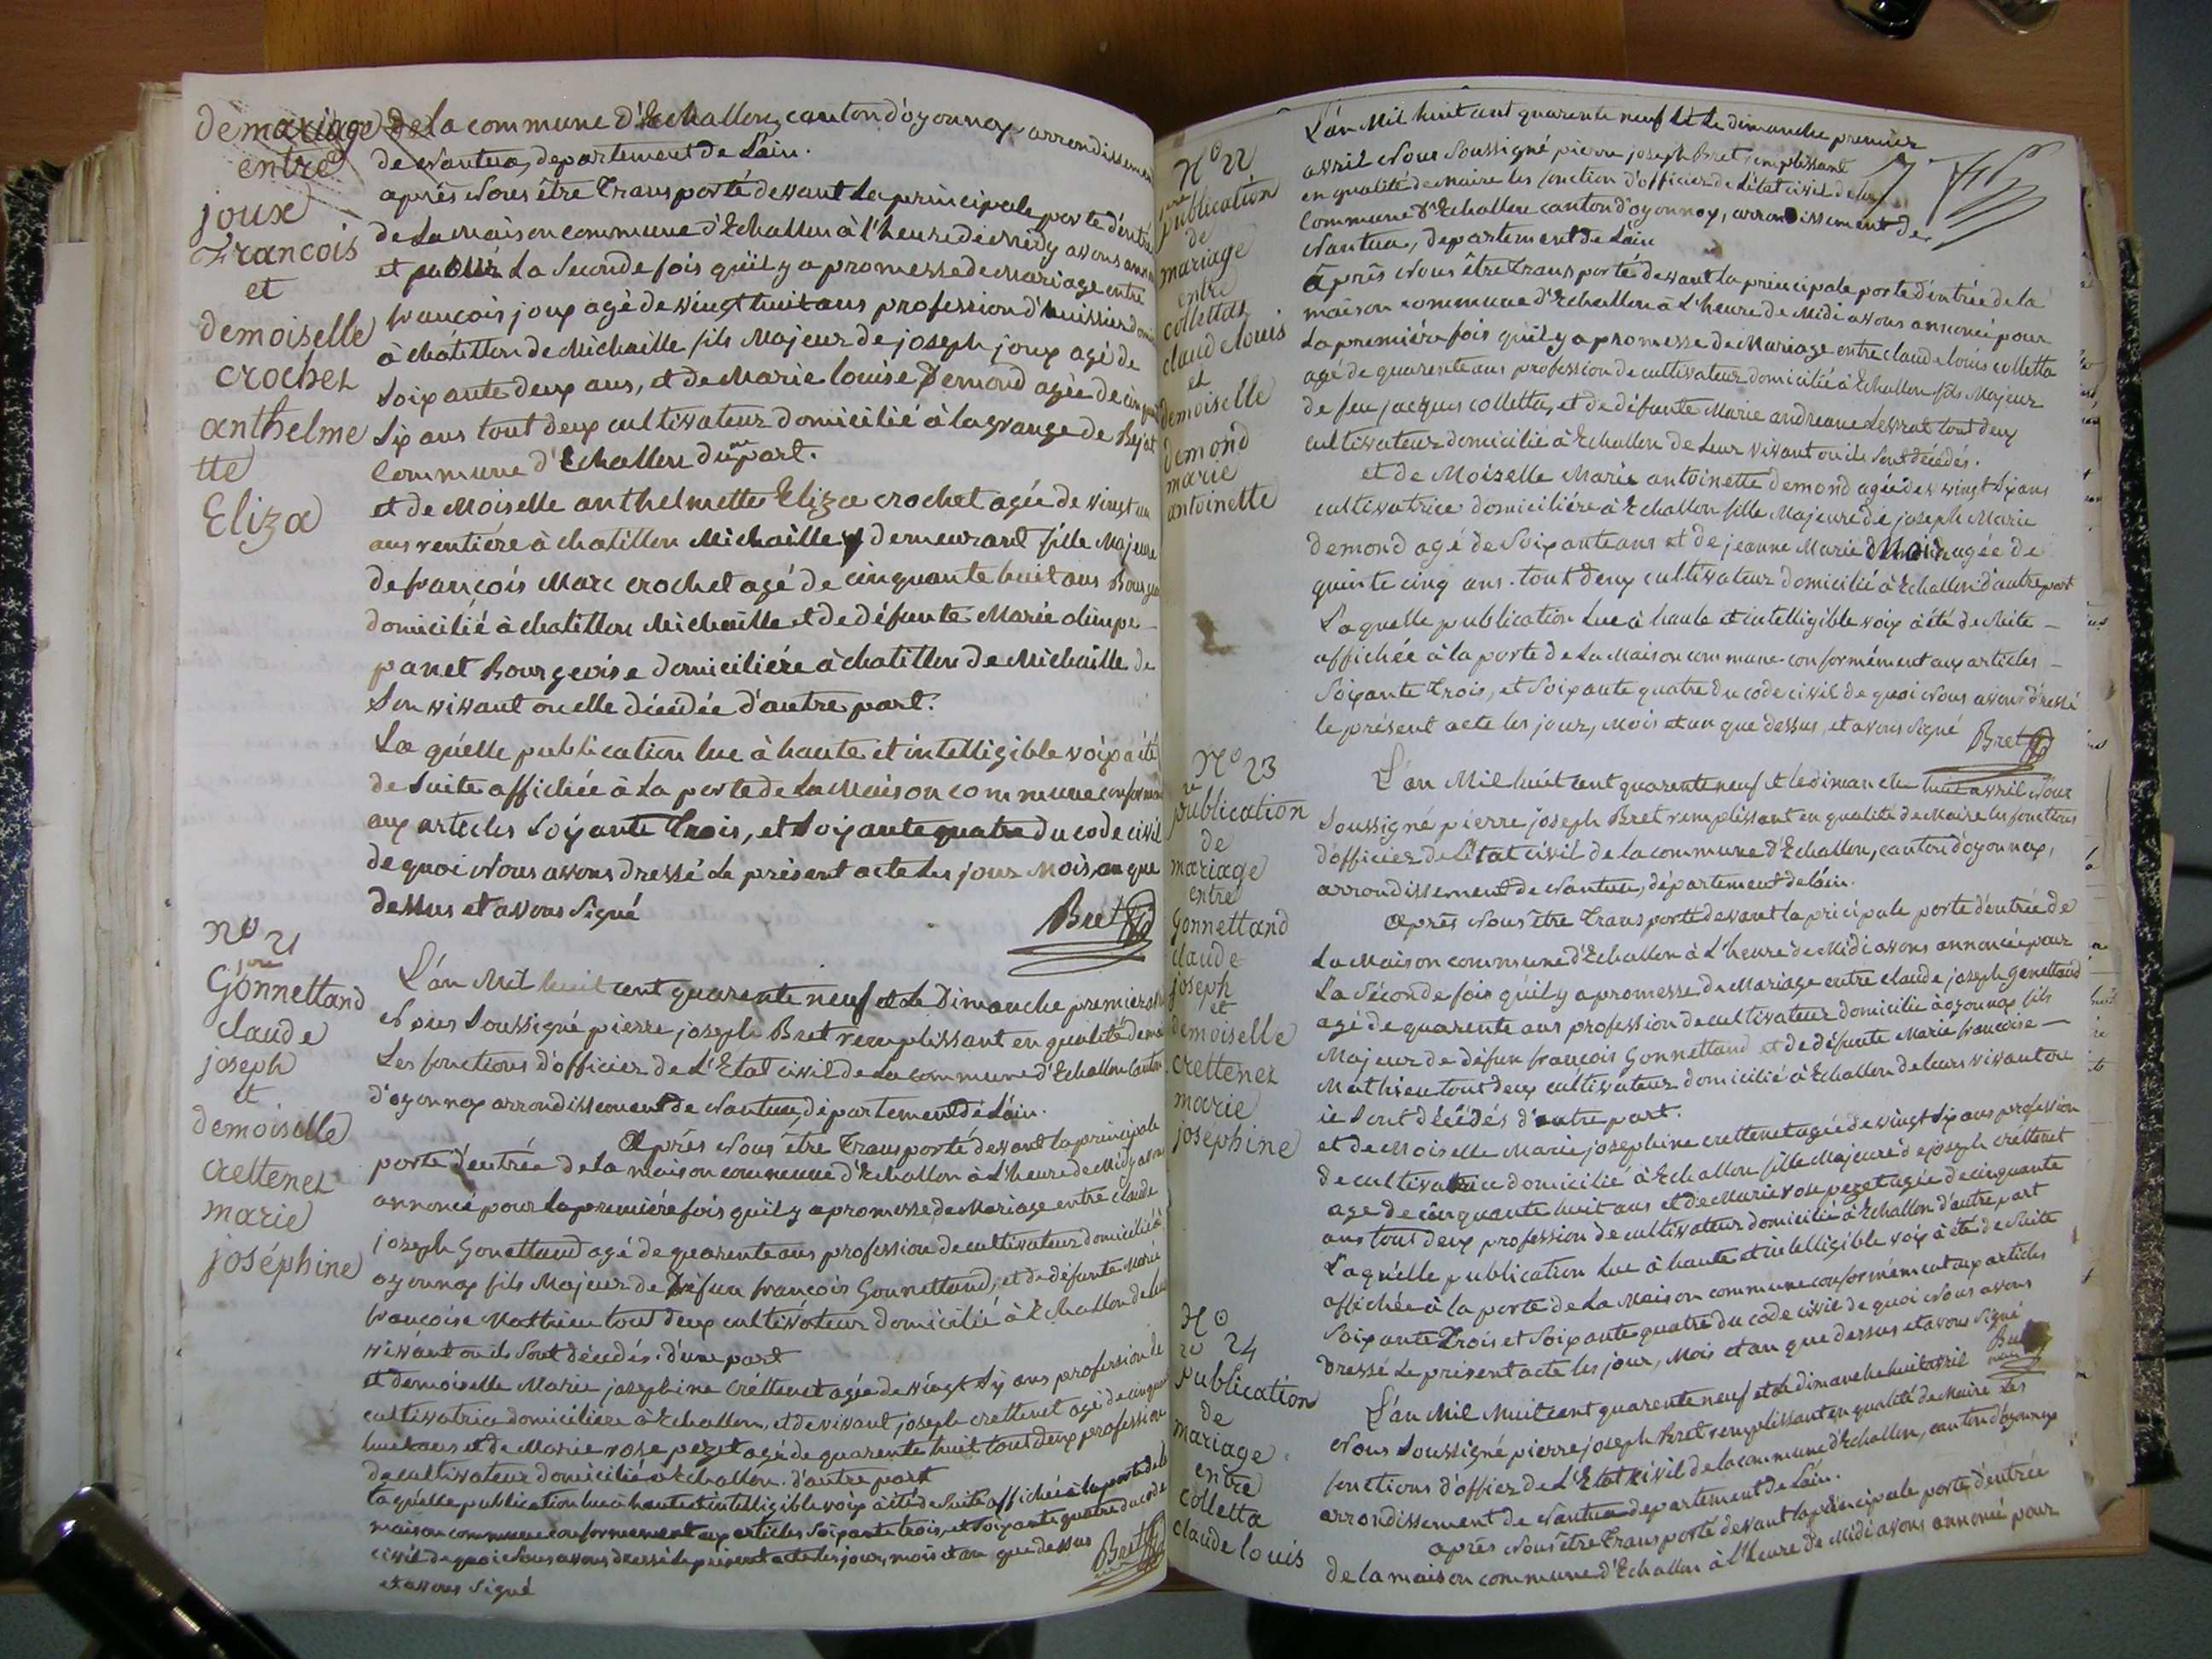 de mariage
entre
joux
francois
et
demoiselle
crochet
anthelme
tte
Eliza
de la commune d'Echallon, canton d'oyonnax, arrondissement
de Nantua, departement de L'ain.
après Nous être transporté devant la principale porte d'entrée
de La Maison commune d'Echallon à l'heure de Midy avons
et publié La Seconde fois qu'il y a promesse de Mariage entre
francois joux agé de vingt huit ans profession d'huissier
à châtillon de Michaille fils Majeur de joseph joux agé de
Soixante deux ans, et de Marie louise Demond agée de
Six ans tout deux cultivateur domicilié à la grange de
Commune d'Echallon d'une part.
et de Moiselle anthelmette Eliza crochet agée de vingt un
ans rentiére à chatillon Michaille y demeurant fille Majeure
de françois Marc crochet agé de cinquante huit ans
domicilié à chatillon Michaille et de défunte Marie olimpe
panet Bourgeoise domiciliére à chatillon de Michaille de
Son vivant ou elle décédée d'autre part.
La quélle publication lue à haute et intelligible voix a été
de Suite affichée à La porte de La Maison commune
aux articles Soixante trois, et Soixante quatre du code civil
de quoi Nous avons dressé Le présent acte Les jour Mois, an que
dessus et avons Signé
Bret
No 21
1ere
Gonnettand
claude
joseph
et
demoiselle
crettenet
marie
joséphine
L'an Mil huit cent quarente neuf et Le Dimanche premier
Nous Soussigné pierre joseph Bret remplissant en qualité de
Les fonctions d'officier de L'Etat civil de La commune d'Echallon Canton
d'oyonnax arrondissement de Nantua, département de L'ain.
Après Nous être transporté devant la principale
porte d'entrée de la maison commune d'Echallon à L'heure de Midy avons
annoncé pour La premiére fois qu'il y a promesse de Mariage entre claude
joseph Gonettand agé de quarente ans profession de cultivateur domicilié à
oyonnax fils Majeur de Défun francois Gonnettand, et de défunte Marie
francoise Mathieu tout deux cultivateur domicilié à Echallon de leur
vivant ou ils Sont décédés. d'une part
et demoiselle Marie josephine Crettenet agée de Vingt Six ans profession de
cultivatrice domiciliere à Echallon, et de vivant joseph crettenet agé de
huit ans et de Marie rose pezet agé de quarente huit tout deux profession
de cultivateur domicilié à Echallon. d'autre part
La quélle publication lue à haute et intelligible voix à été de Suite affichée à la porte de la
maison commune conformément aux articles Soixante trois, et Soixante quatre du code
civil de quoi Nous avons dressé le présent acte les jour, mois et an que dessus
et avons Signé
Bret
No 22
1ere
publication
de
mariage
entre
collettaz
claude louis
et
demoiselle
demond
marie
antoinette
L'an Mil huit cent quarente neuf et Le dimanche premier
avril Nous Soussigné pierre joseph Bret remplissant
en qualité de Maire les fonction d'officier de L'état civil de la
Commune d'Echallon canton d'oyonnax, arrondissement de
Nantua, departement de Lain
Après Nous être transporté devant la principale porte d'entrée de la
maison commune d'Echallon à L'heure de Midi avons annoncé pour
La premiére fois qu'il y a promesse de Mariage entre claude louis colletta
agé de quarente ans profession de cultivateur domicilié à Echallon fils Majeur
de feu jacques colletta, et de défunte Marie andreane Levrat tout deux
cultivateur domicilié à Echallon de Leur vivant ou ils Sont décédés.
et de Moiselle Marie antoinette demond agée de vingt Six ans
cultivatrice domiciliére à Echallon fille Majeure de joseph Marie
demond agé de Soixante ans et de jeanne Marie agée de
quinte cinq ans. tout deux cultivateur domicilié à Echallon d'autre part
Laquelle publication Lue à haute et intelligible voix à été de Suite
affichée à la porte de La Maison commune conformément aux articles
Soixante trois, et Soixante quatre du code civil de quoi Nous avons dressé
le présent acte les jour, Mois et an que dessus, et avons Signé
Bret
No 23
publication
de
mariage
entre
Gonnettand
claude
joseph
et
demoiselle
crettenet
marie
joséphine
L'an Mil huit cent quarente neuf et le dimanche huit avril Nous
Soussigné pierre joseph Bret remplissant en qualité de Maire les fonctions
d'officier de L'état civil de la commune d'Echallon, canton d'oyonnax,
arrondissement de Nantua, département de Lain.
Après Nous être transporté devant la pricipale porte d'entrée de
La Maison commune d'Echallon à L'heure de Midi avons annoncé pour
La Séconde fois qu'il y a promesse de Mariage entre claude joseph Gonettand
agé de quarente ans profession de cultivateur domicilié à oyonnax fils
Majeur de défun françois Gonnettand et de défunte Marie francoise
Mathieu tout deux cultivateur domicilié à Echallon de leurs vivant ou
il Sont décédés d'autre part.
et de Moiselle Marie josephine crettenet agée de vingt Six ans profession
de cultivatrice domicilié à Echallon fille Majeure de joseph crettenet
age de cinquante huit ans et de Marie rose pezet agée de cinquante
ans tout deux profession de cultivateur domicilié à Echallon d'autre part
Laquélle publication Lue à haute et intelligible voix à été de Suite
affichée à la porte de La Maison commune conformément aux articles
Soixante trois et Soixante quatre du code civil de quoi Nous avons
dressé Le présent acte les jour, Mois et an que dessus et avons Signé
No 24
publication
de
mariage
entre
Colletta
claude louis
L'an Mil Huit cent quarente neuf et Le dimanche huit avril
Nous Soussigné pierre joseph Bret remplissant en qualité de Maire Les
fonctions d'officer de L'Etat civil de la commune d'Echallon, canton d'oyonnax
arrondissement de Nantua departement de Lain.
après Nous être transporté devant la principale porte d'entrée
de la maison commune d'Echallon à l'heure de Midi avons annoncé pour